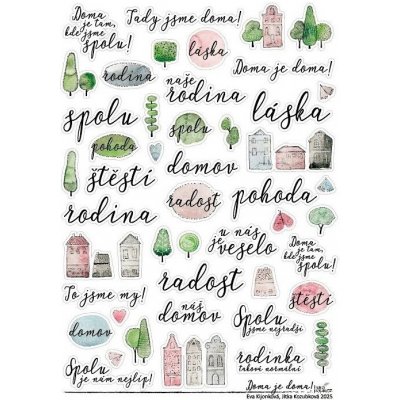 Doma
je tam,
kde jsme
spolu!
Tady jsme doma!
láska
Doma je doma!
rodina
naše
rodina
láska
spolu
spolu
pohoda
domov
štěstí
radost
pohoda
rodina
u nás
je
veselo
Doma
je tam,
kde jsme
spolu!
radost
To jsme my!
náš
domov
štěstí
domov
Spolu
jsme nejradši
Spolu
je nám nejlíp!
rodinka
taková normální
Doma je doma!
Eva Kijonková, Jitka Kozubková 2025